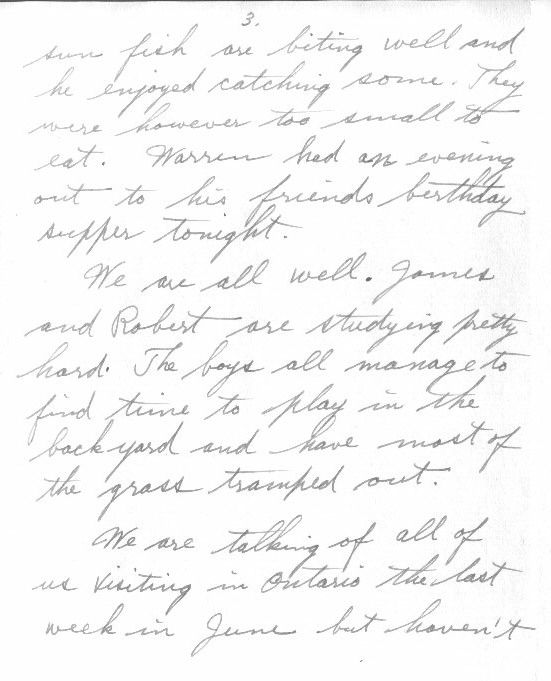 3.
sun fish are biting well and
he enjoyed catching some. They
were however too small to
eat. Warren had an evening
out to his friends birthday
supper tonight.
We are all well. James
and Robert are studying pretty
hard. The boys all manage to
find time to play in the
back yard and have most of
the grass tramped out.
We are talking of all of
us visiting in Ontario the last
week in June but haven't